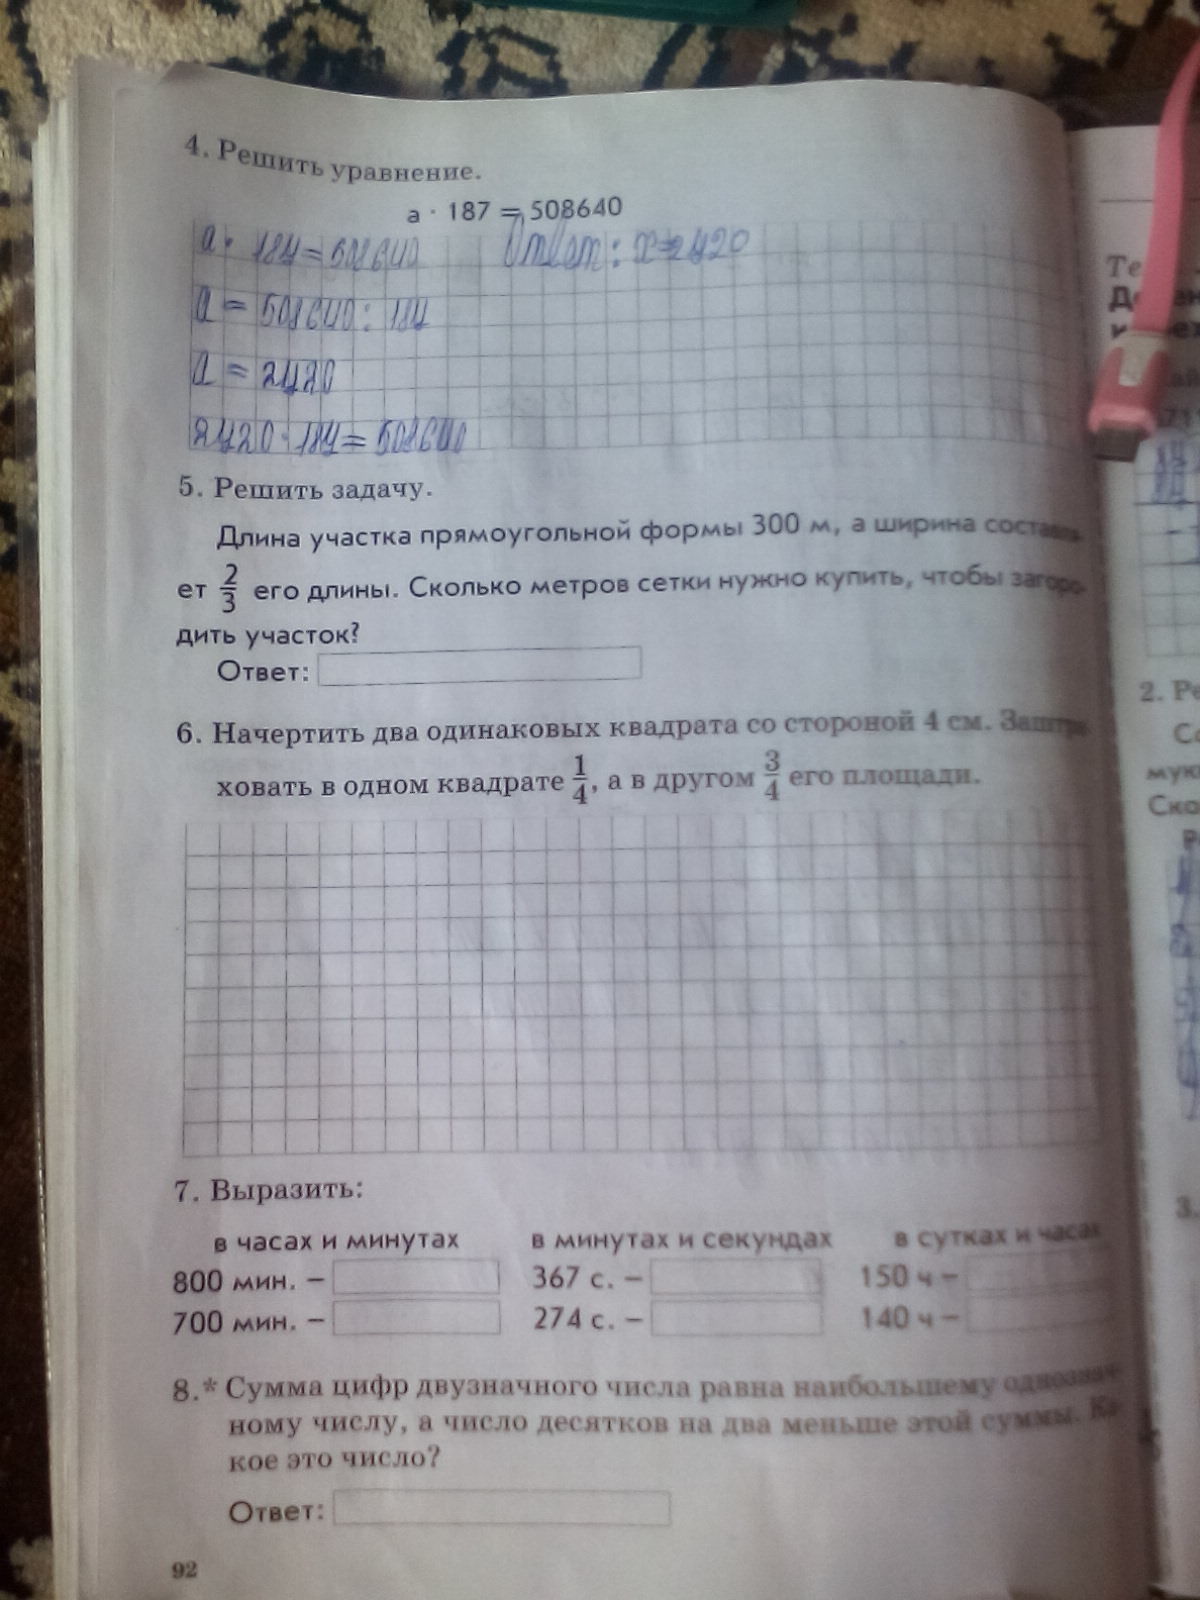 4. Решить уравнение.
а · 187 = 508640
а · 187 = 508640
Ответ: х=2720
а = 508640 : 187
а = 2720
2720 · 187 = 508640
5. Решить задачу.
Длина участка прямоугольной формы 300 м, а ширина составля-
ет 2/3 его длины. Сколько метров сетки нужно купить, чтобы загоро-
дить участок?
Ответ:
6. Начертить два одинаковых квадрата со стороной 4 см. Заштри-
ховать в одном квадрате 1/4, а в другом 3/4 его площади.
7. Выразить:
в часах и минутах в минутах и секундах в сутках и часах
800 мин. – 367 с. – 150 ч –
700 мин. – 274 с. – 140 ч –
8.* Сумма цифр двузначного числа равна наибольшему однознач-
ному числу, а число десятков на два меньше этой суммы. Ка-
кое это число?
Ответ:
92
2. Ре
Со
мук
Ско
3.